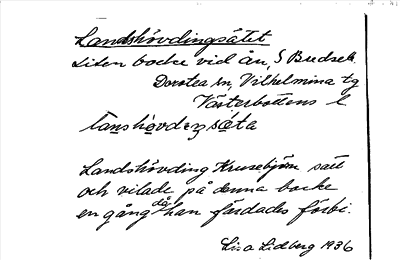 Landshövdingsätet
Liten backe vid ån, S Bredsele.
Dorotea sn, Vilhelmina tg
Västerbottens l
lanshøvdeŋsäta
Landshövding Krusebjörn satt
och vilade på denna backe
en gång då han färdades förbi.
Lisa Lidberg 1936